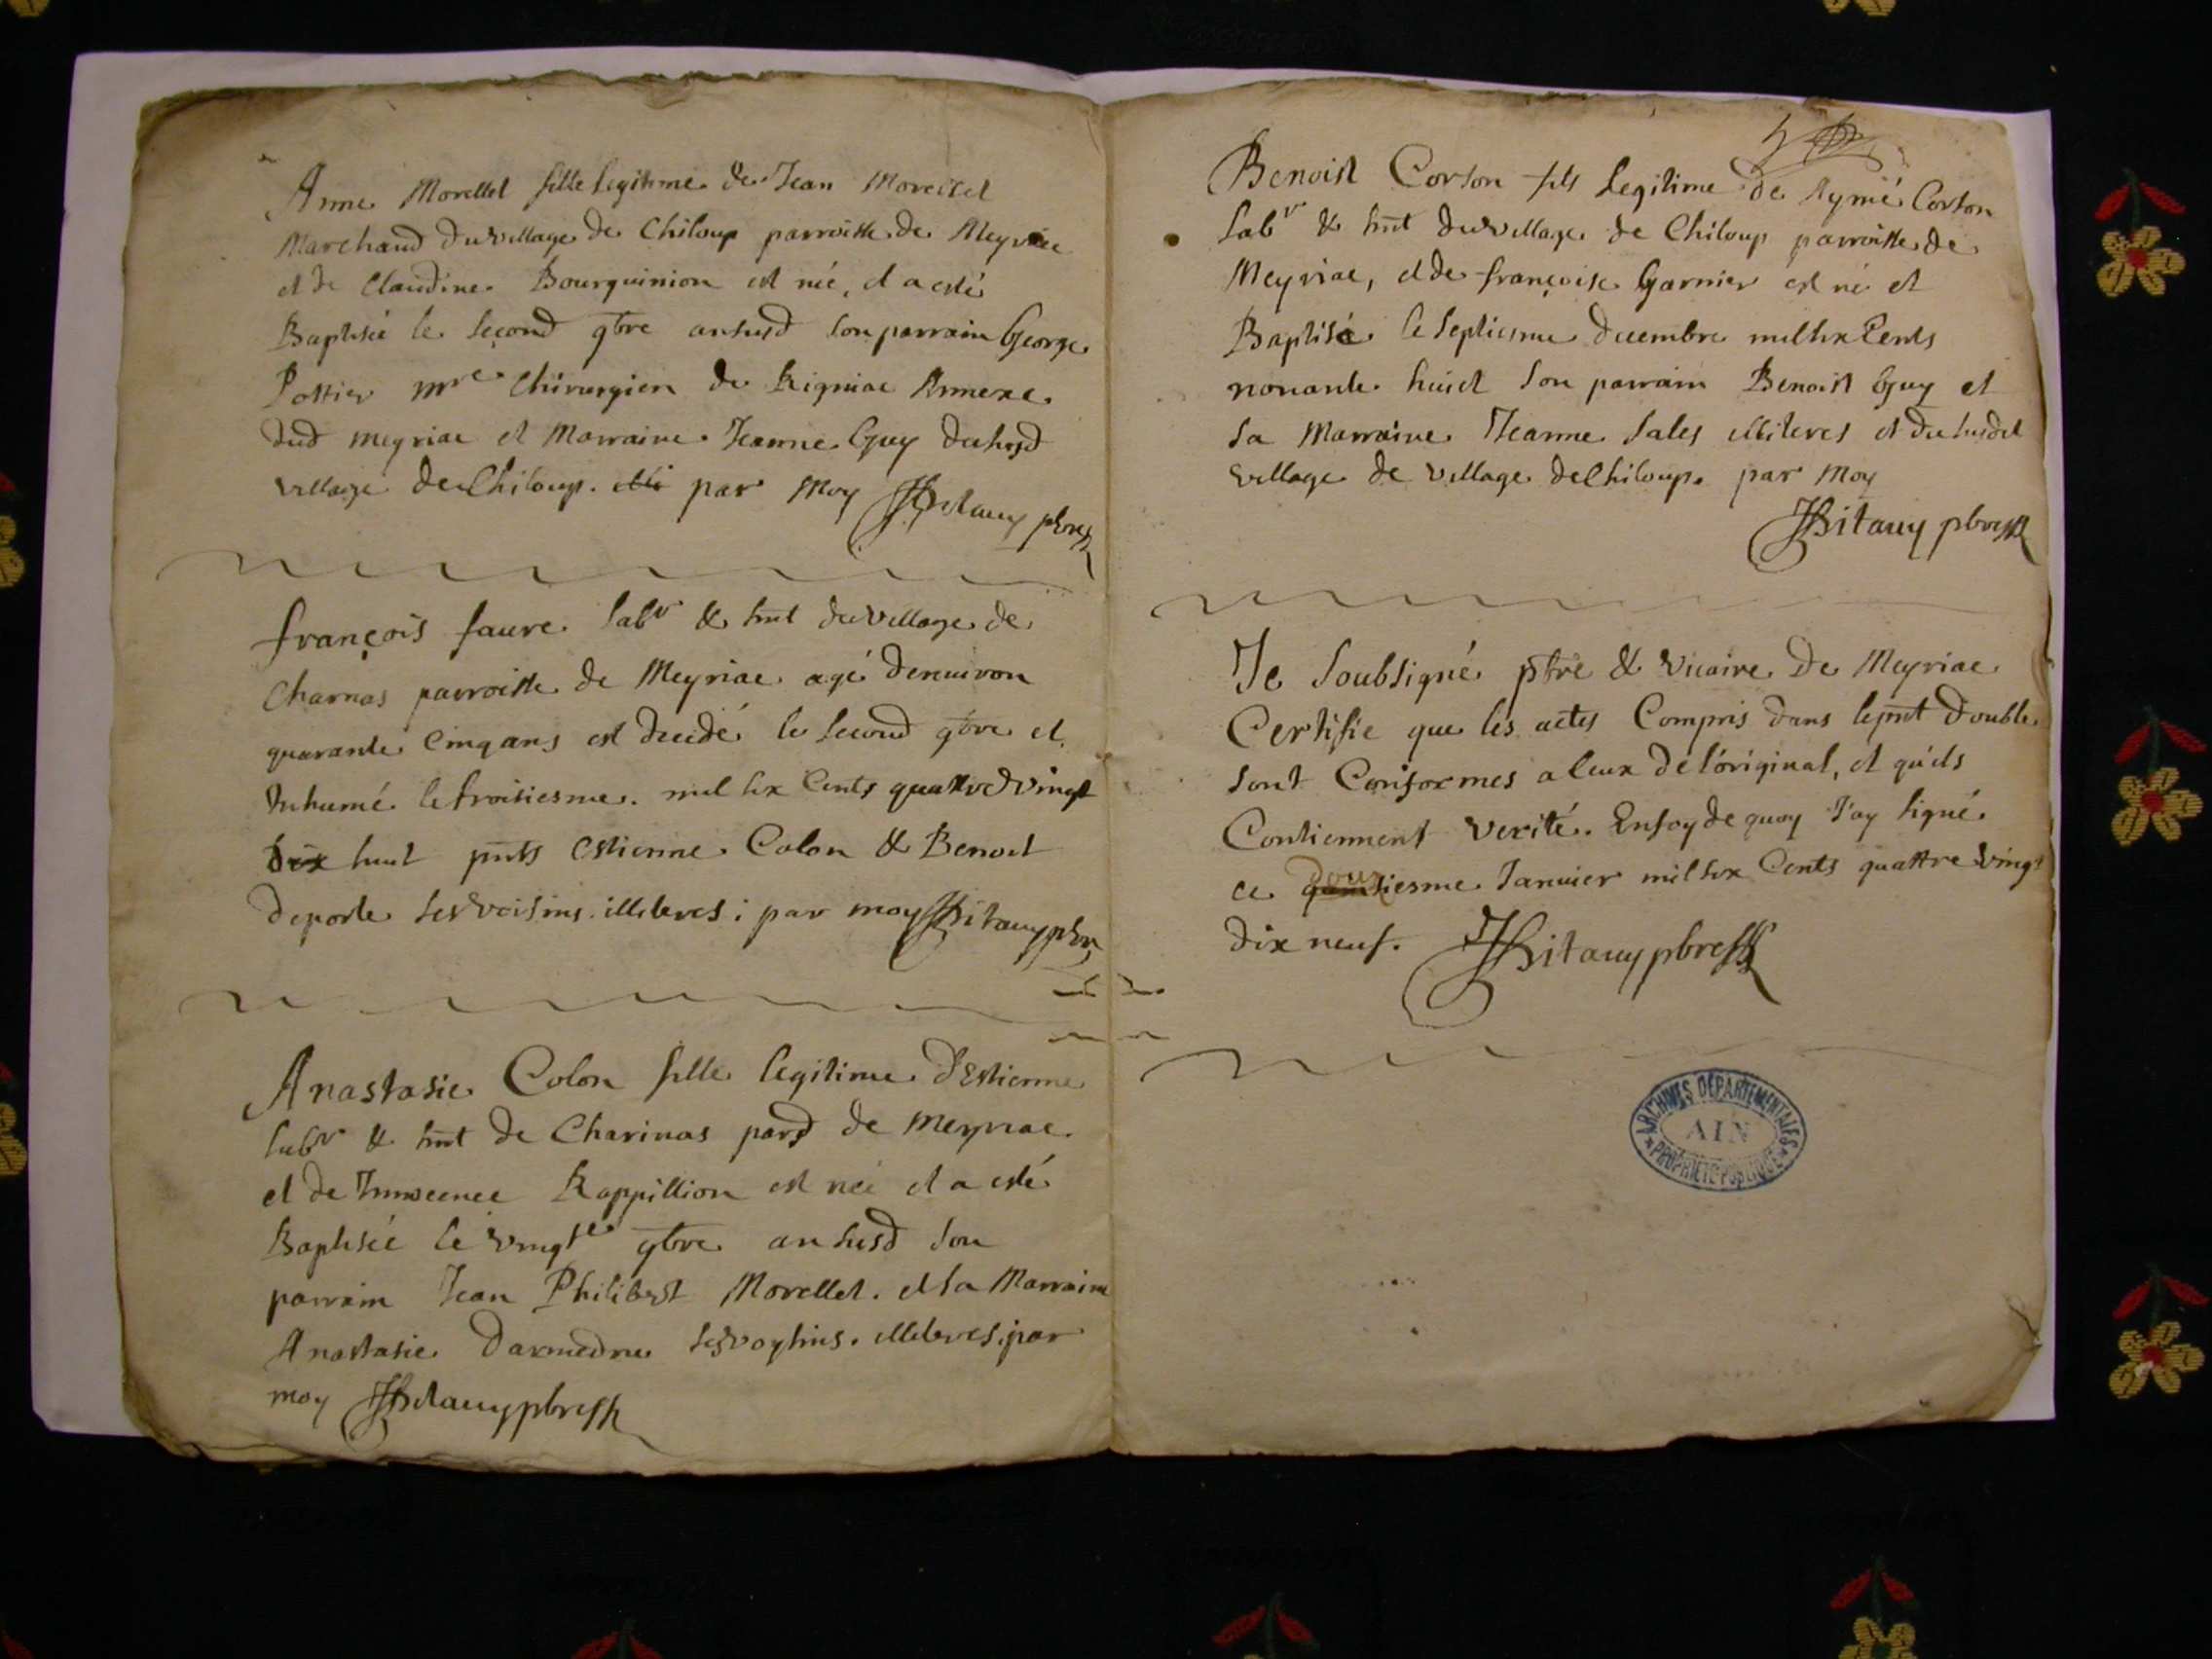 Anne Morellet fille legitime de Jean Morellet
Marchand du village de Chiloup parroisse de Meyriac
et de Claudine Bourguinion est née, et a esté
Baptisée le second 9bre an susd son parrain George
Pottier mre Chirurgien de Rigniac Annexe
dud meyriac et Marraine Jeanne Guy du susd
village de Chiloup. par Moy JBitauy pbre
françois faure labr & hnt du village de
Charnas parroisse de Meyriac agé denuiron
quarante Cinq ans est decedé le second 9bre et
Inhumé le troisiesme. mil six Cents quattre vingt
dix huit pnts Estienne Colon & Benoit
deporte ses voisins. illiteres : par moy JBitauy pbre
Anastasie Colon fille legitime d'Estienne
labr & hnt de Charinas pard de meyriac
et de Innocence Rappillion est née et a esté
Baptisée le vingte 9bre an susd son
parrain Jean Philibert Morellet. et sa Marraine
Anastasie Darmedne ses voysins. illiteres. par
moy JBitauy pbre
Benoist Corton fils legitime de Aymé Corton
labr & hnt du village de Chiloup parroisse de
Meyriac, et de françoise Garnier est né et
Baptisé le septiesme decembre mil six Cents
nonante huict son parrain Benoist Guy et
sa Marraine Jeanne Sales illiteres et du susdit
village de village de Chiloup. par Moy
JBitauy pbre
Je soubsigné ptre & vicaire De Meyriac
Certifie que les actes Compris dans le pnt double
sont Conformes a ceux de l'original, et qu'ils
Contiennent verité. En foy de quoy J'ay signé
ce douziesme Januier mil six Cents quattre vingt
dix neuf. JBitauy pbre
ARCHIVES DÉPARTEMENTALES
AIN
PROPRIÉTÉ PUBLIQUE